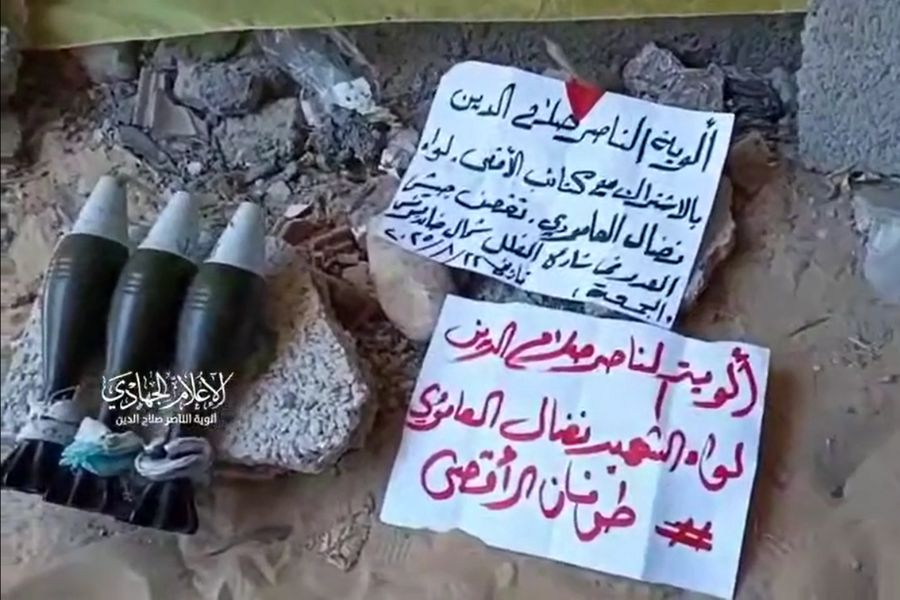 ألوية الناصر صلاح الدين
بالاشتراك مع كتائب الأقصى. لواء
نضال العامودي. تقصف جيش
العدو في شارع شمال خانيونس
بتاريخ ٢٠٢٥/٨/٢٢
(الجمعة)
ألوية الناصر صلاح الدين
لواء الشهيد نضال العامودي
# طوفان الأقصى
الإعلام الجهادي
ألوية الناصر صلاح الدين